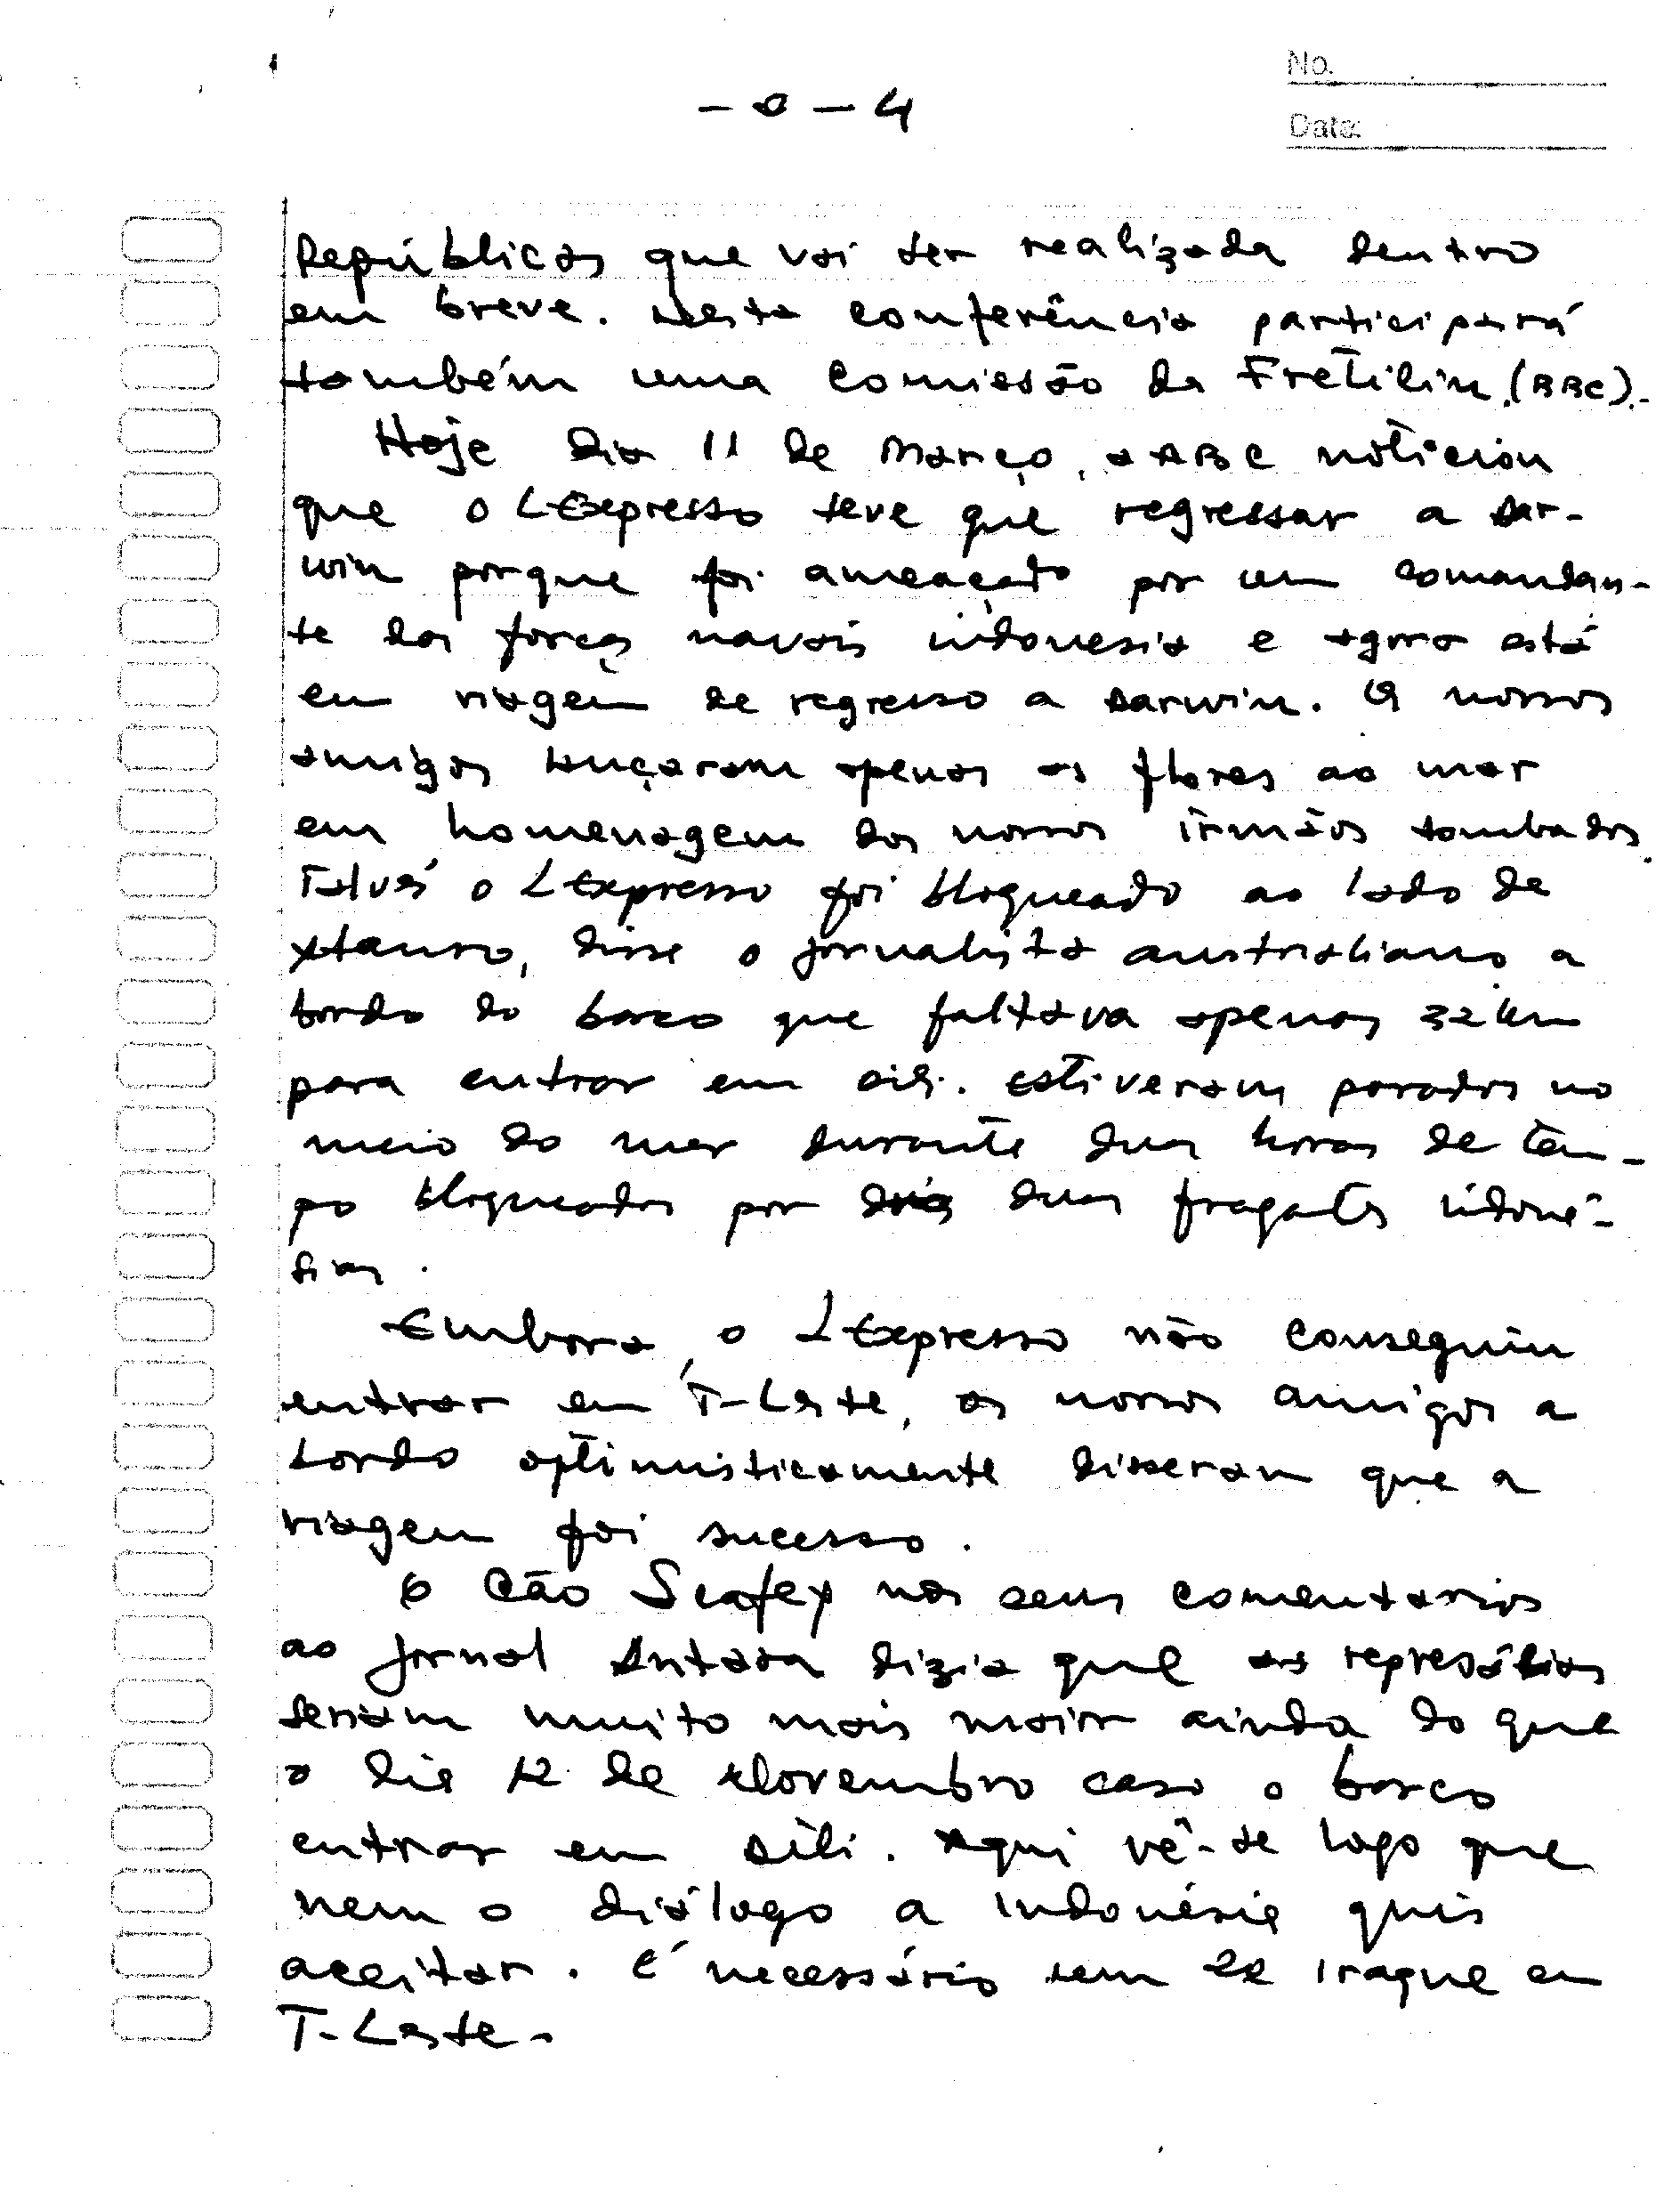 No.
- o - 4
Date:
Repúblicas que vai ser realizada dentro
em breve. Nesta conferência participará
também uma comissão da Fretilin (BBC).-
Hoje dia 11 de Março, a ABC noticiou
que o LExpresso teve que regressar a Dar-
win porque foi ameaçado por um comandan-
te das forças navais indonesia e agora está
em viagem de regresso a Darwin. Os nossos
amigos lançaram apenas as flores ao mar
em homenagem dos nossos irmãos tombados.
Talvés o LExpresso foi bloqueado ao lado de
Atauro, disse o jornalista australiano a
bordo do barco que faltava apenas 32 km
para entrar em Dili. Estiveram parados no
meio do mar durante duas horas de tem-
po bloqueados por duas fragatas indoné-
sias.
Embora, o LExpresso não conseguiu
entrar em T-Leste, os nossos amigos a
bordo optimisticamente disseram que a
viagem foi sucesso.
O Cão Syafey nos seus comentarios
ao jornal Antara dizia que as represálias
seriam muito mais maior ainda do que
o dia 12 de Novembro caso o barco
entrar em Díli. Aqui vê-se logo que
nem o diálogo a Indonésia quis
aceitar. É necessário um ex Iraque em
T-Leste-